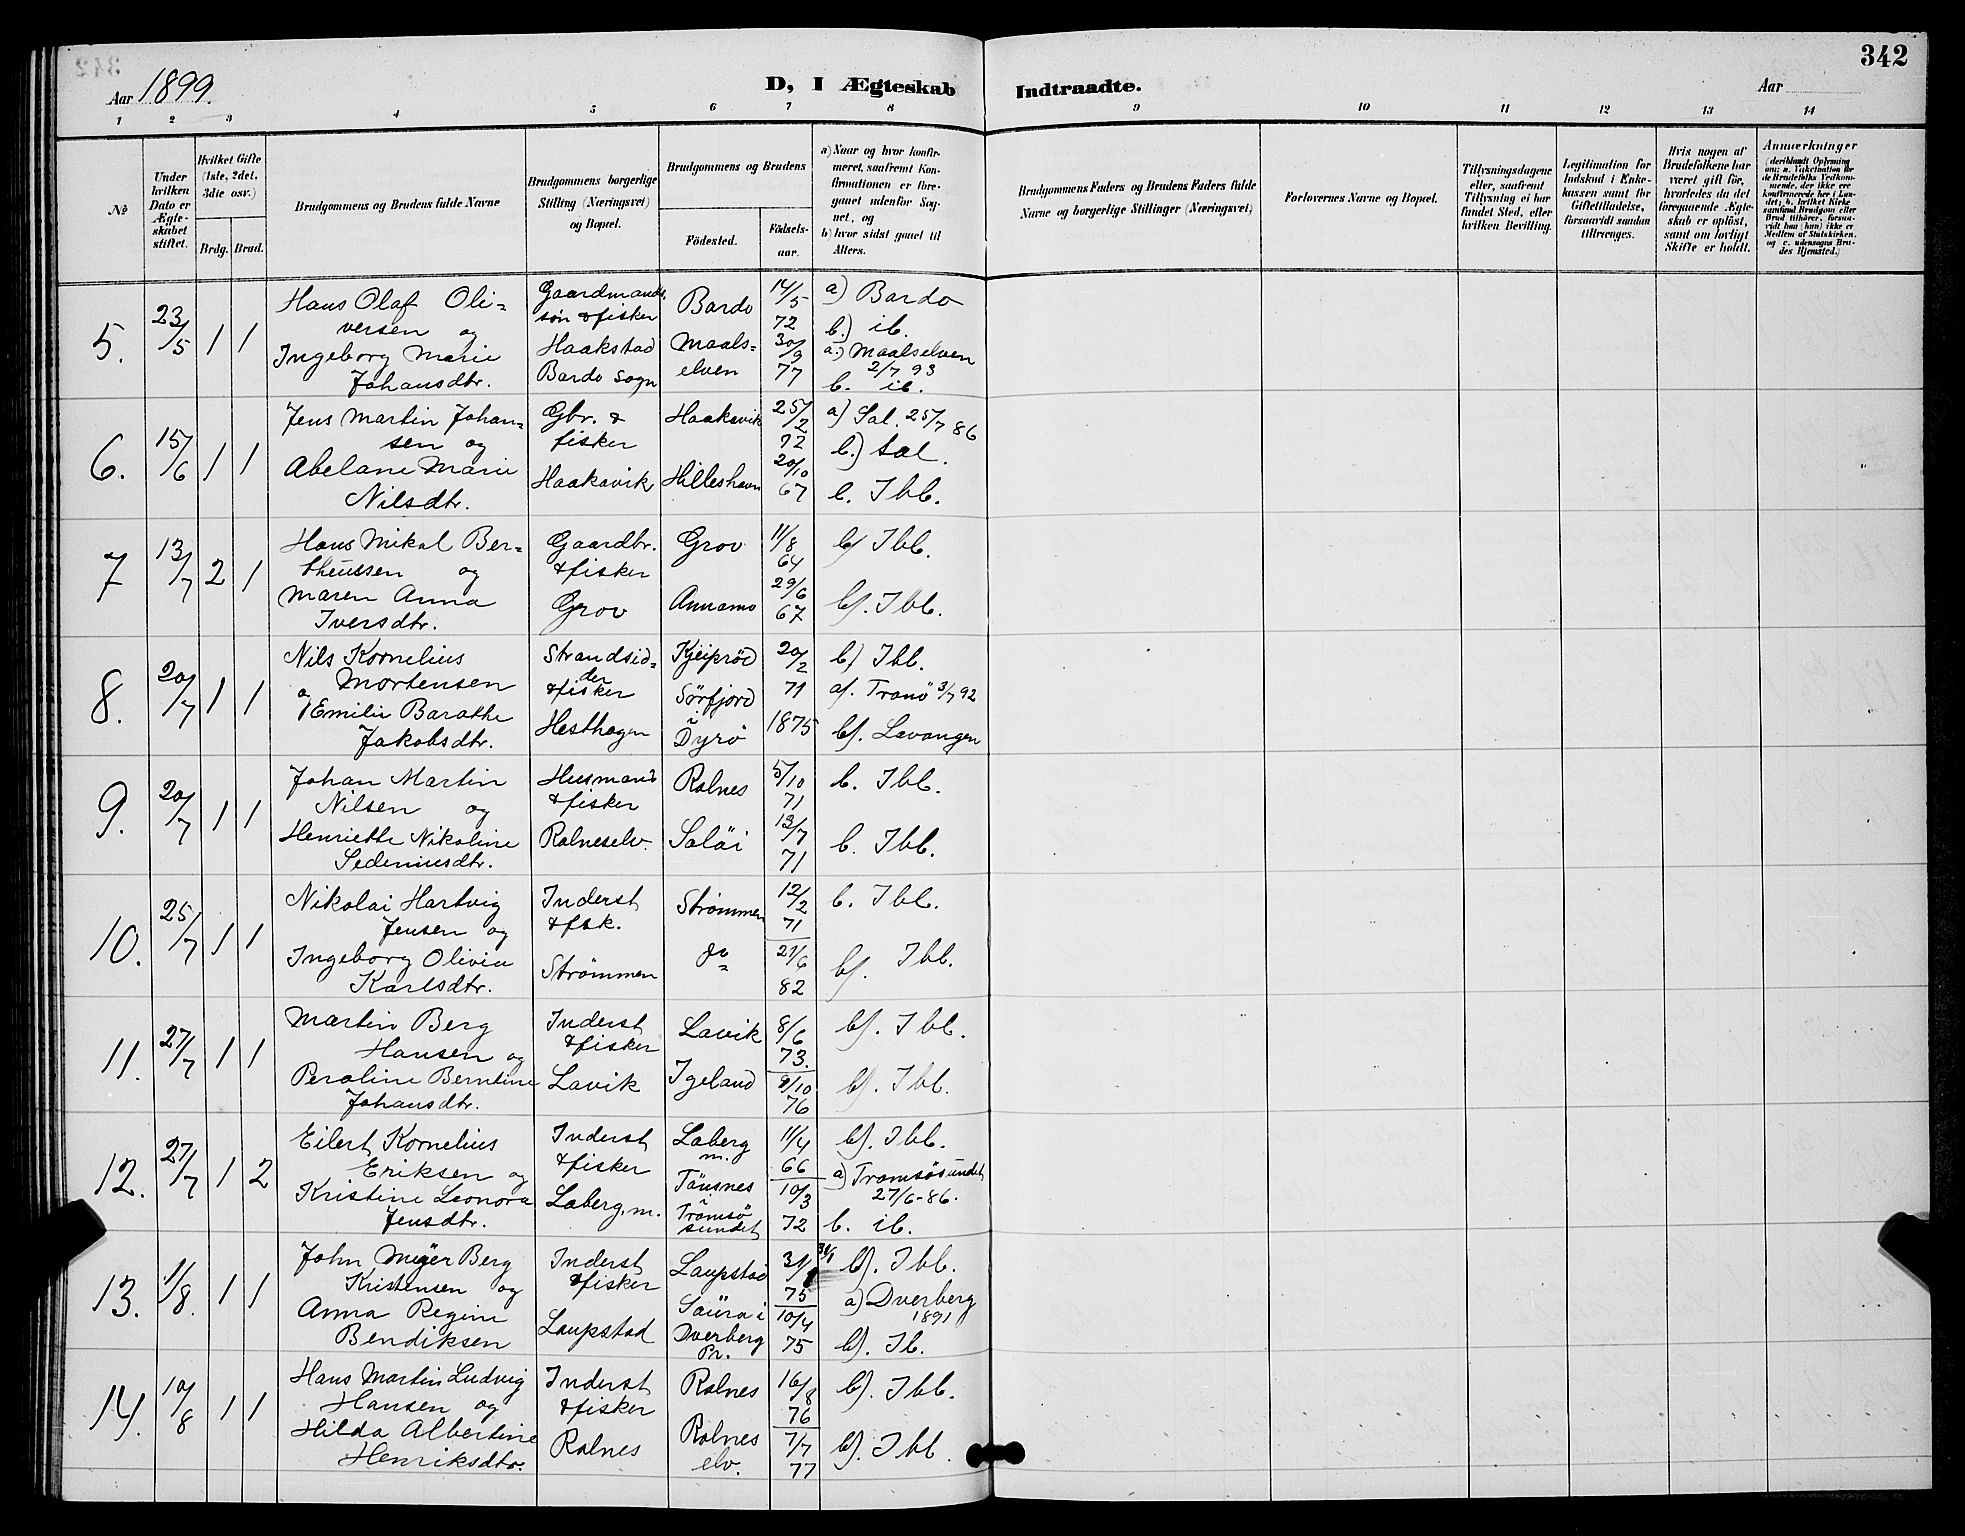 342
Aar 1899.
D, I Ægteskab Indtraadte.
Aar
1 2 3 4 5 6 7 8 9 10 11 12 13 14
№
Under hvilken Dato er Ægteskabet stiftet.
Hvilket Gifte (1ste, 2det, 3die osv.)
Brdg. Brud.
Brudgommens og Brudens fulde Navne
Brudgommens borgerlige Stilling (Næringsvei) og Bopæl.
Brudgommens og Brudens
Fødested.
Fødselsaar.
a) Naar og hvor konfirmeret, saafremt Konfirmationen er foregaaet udenfor Sognet, og
b) hvor sidst gaaet til Alters.
Brudgommens Faders og Brudens Faders fulde Navne og borgerlige Stillinger (Næringsvei)
Forlovernes Navne og Bopæl.
Tillysningsdagene eller, saafremt Tillysning ei har fundet Sted, efter hvilken Bevilling.
Legitimation for Indskud i Enkekassen samt for Giftetilladelse, forsaavidt saadan tiltrænges.
Hvis nogen af Brudefolkene har været gift før, hvorledes da det foregaaende Ægteskab er opløst, samt om lovligt Skifte er holdt.
Anmærkninger
5. 23/5 1 1
Hans Olaf Oli-
versen og
Ingeborg Marie
Johansdtr.
Gaardmands
søn & fisker
Haakstad
Bardo Sogn
Bardo
Maals-
elven
14/5
72
30/9
77
a) Bardo
b.) ib.
a.) Maalselven
2/7 93
b. ib.
6. 15/6 1 1
Jens Martin Johan-
sen og
Abelane Marie
Nilsdtr.
Gbr. &
fisker
Haakavik
Haakavik
Hilleshavn
25/2
72
20/10
67
a) Sal. 25/7 86
b.) Sal.
b. Ibb.
7 13/7 2 1
Hans Mikal Ber-
theussen og
Maren Anna
Iversdtr.
Gaardbr.
& fisker
Grov
Grov
Annamo
11/8
64
29/6
67
b) Ibb.
b). Ibb.
8. 20/7 1 1
Nils Kornelius
Mortensen
og Emilie Barathe
Jakobsdtr.
Strandsid-
der
& fisker
Hesthagen
Kjeiprød
Sørfjord
i
Dyrø
20/2
71
1875
b) Ibb.
a). Tranö 3/7 92
b). Lavangen
9. 20/7 1 1
Johan Martin
Nilsen og
Henriette Nikoline
Sedeniusdtr.
Husmand
& fisker
Rolneselv.
Rolnes
Saløi
5/10
71
13/7
71
b. Ibb.
b. Ibb.
10. 25/7 1 1
Nikolai Hartvig
Jensen og
Ingeborg Olivia
Karlsdtr.
Inderst
& fsk.
Strømmen
Strømmen
do
12/2
71
27/6
82
b. Ibb.
b). Ibb.
11. 27/7 1 1
Martin Berg
Hansen og
Peroline Berntine
Johansdtr.
Inderst
& fisker
Lavik
Lavik
Igeland
8/6
73.
9/10
76
b). Ibb.
b). Ibb.
12. 27/7 1 2
Eilert Kornelius
Eriksen og
Kristine Leonora
Jensdtr.
Inderst
& fisker
Laberg. m.
Laberg
m.
Tønsnes
i
Tromsø
sundet
11/4
66
10/3
72
b). Ibb.
a) Tromsøsundet
27/6-86.
b. ib.
13. 1/8. 1 1
John Meyer Berg
Kristensen og
Anna Regine
Bendiksen
Inderst
& fisker
Laupstad
Laupstad
Saura i
Dverberg
Pr.
31/1
75
10/4
75
31/1
b). Ibb.
a) Dverberg
1891
b). Ib.
14. 10/8 1 1
Hans Martin Ludvig
Hansen og
Hilda Albertine
Henriksdtr.
Inderst
& fisker
Rolnes
Rolnes
Rolnes
elv.
16/8
76
7/7
77
b). Ibb.
b). Ibb.